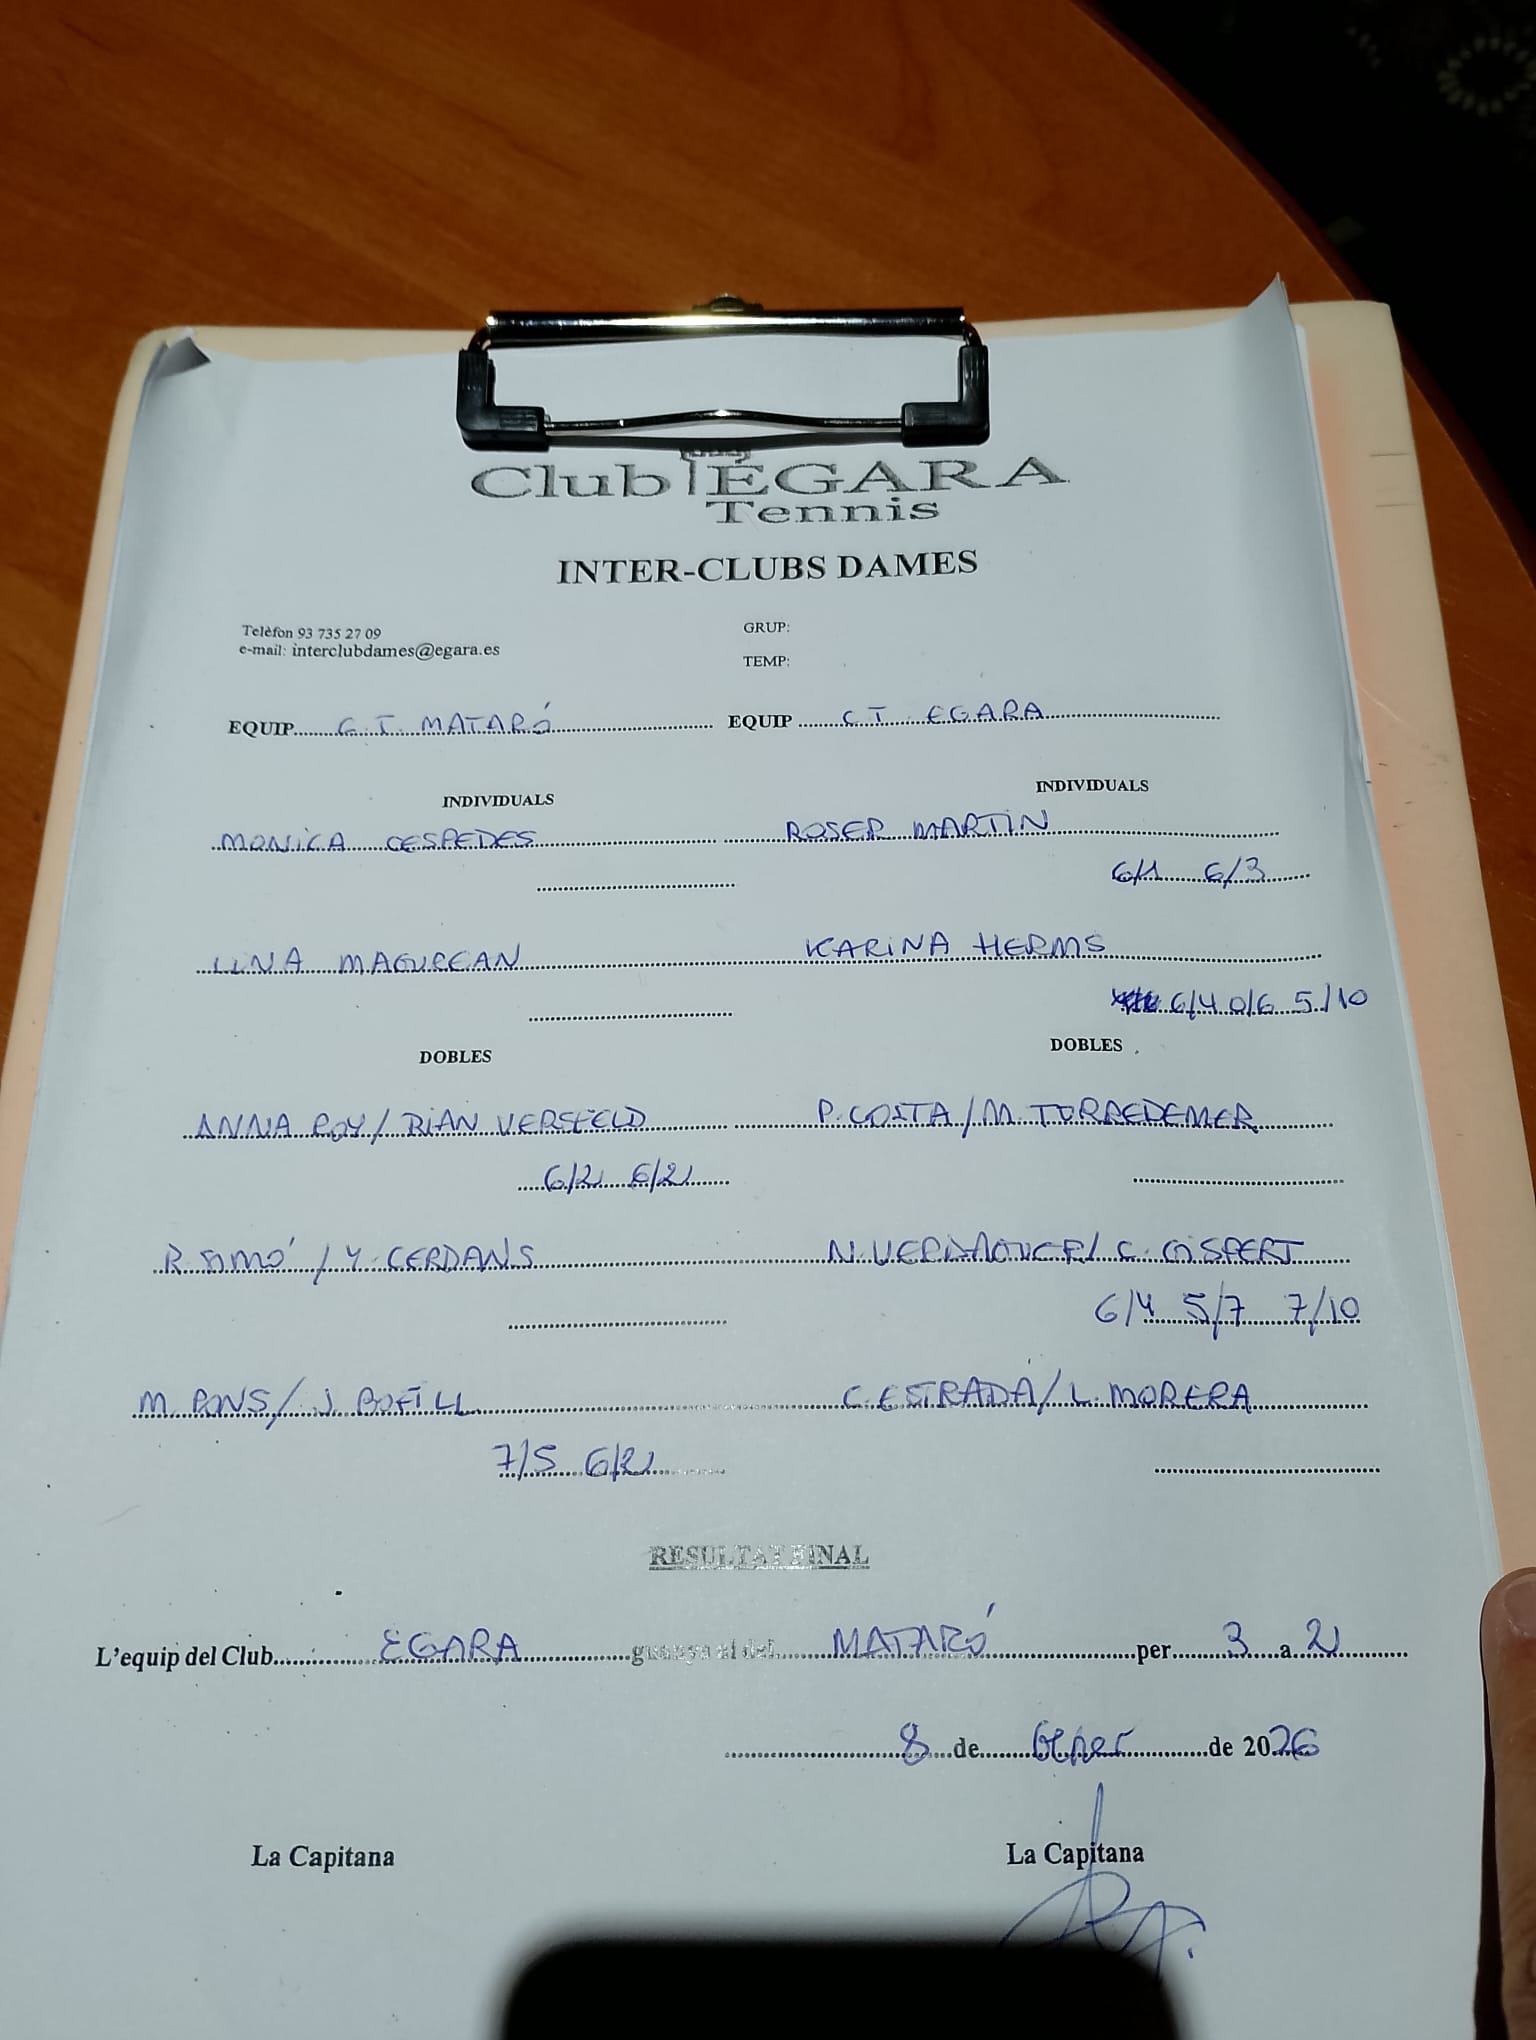 Club EGARA
Tennis
INTER-CLUBS DAMES
Telèfon 93 735 27 09
e-mail: interclubdames@egara.es
GRUP:
TEMP:
EQUIP C.T. MATARÓ EQUIP C.T. EGARA
INDIVIDUALS INDIVIDUALS
MONICA CESPEDES ROSER MARTIN
6/1 6/3
MAGUREAN KARINA HERMS
6/4 0/6 5/10
DOBLES DOBLES
ANNA ROY / RIAN VERSFELD P. COSTA / M. TORREDEMER
6/2 6/2
R. SIMÓ / Y. CERDANS N. VERDAGUER / C. GISPERT
6/4 5/7 7/10
M. PONS / J. BOFILL C. ESTRADA / L. MORERA
7/5 6/2
RESULTAT FINAL
L'equip del Club EGARA guanya al del MATARÓ per 3 a 2
8 de Gener de 2026
La Capitana La Capitana